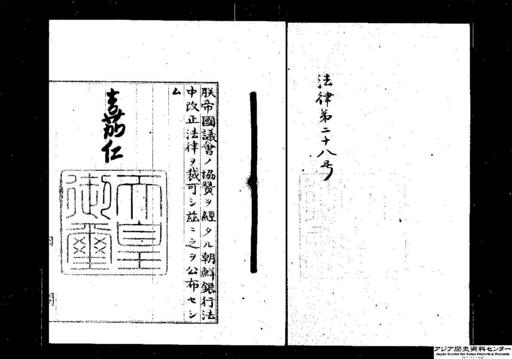 法律第二十八号
朕帝國議會ノ協賛ヲ經タル朝鮮銀行法
中改正法律ヲ裁可シ茲ニ之ヲ公布セシ
ム
嘉仁
天皇
御璽
アジア歴史資料センター
Japan Center for Asian Historical Records